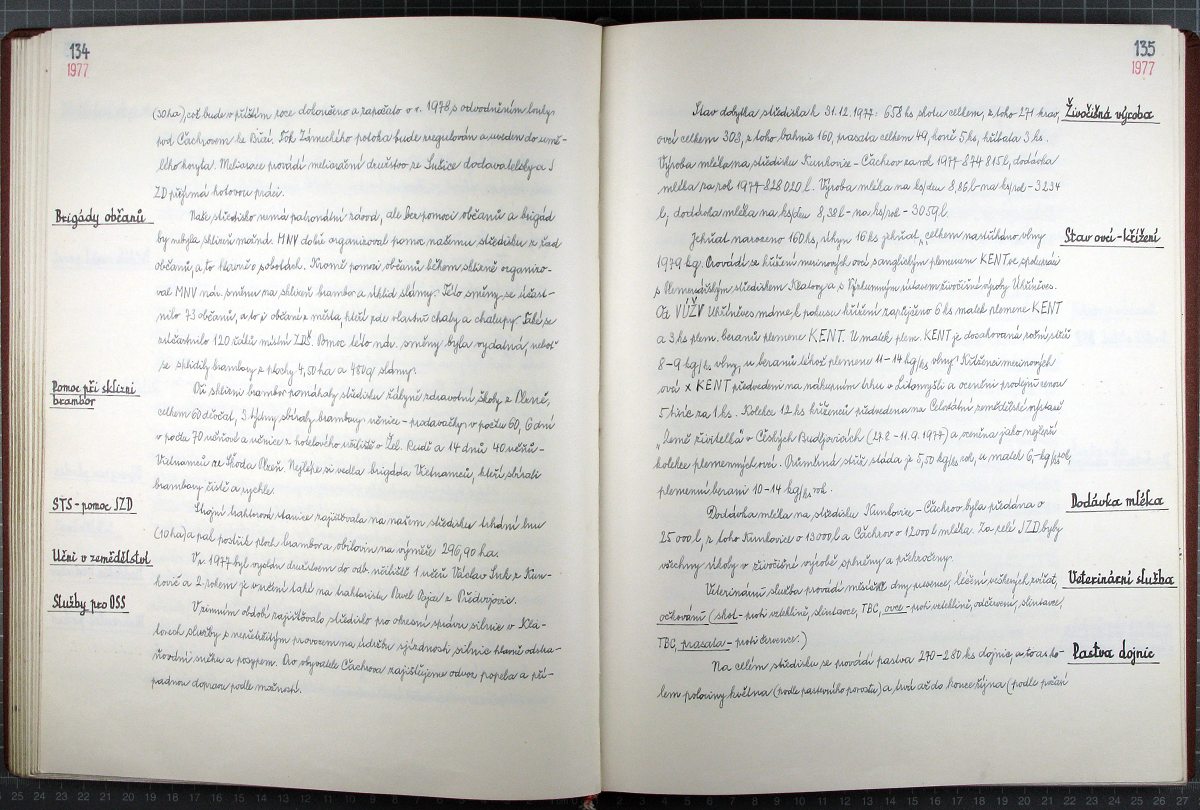 134
1977
(30 ha), což bude v příštím roce dokončeno a započato v r. 1978 s odvodněním louky
pod Čachrovem ke Bíri. Tok Zámeckého potoka bude zregulován a uveden do umě-
lého koryta. Meliorace provádí meliorační družstvo ze Sušice dodavatelsky a J
ZD přijímá hotovou práci.
Brigády občanů
Naše středisko nemá patronátní závod, ale bez pomoci občanů a brigád
by nebyla sklizeň možná. MNV dobře organizoval pomoc našemu středisku z řad
občanů, a to hlavně o sobotách. Kromě pomoci občanů během sklizně organizo-
val MNV nár. směnu na sklizeň brambor a úklid slámy. Této směny se účast-
nilo 73 občanů, a to i občané z města, kteří zde vlastní chaty a chalupy. Také se
zúčastnilo 120 žáků místní ZDŠ. Pomoc této nár. směny byla vydatná, neboť
se sklidily brambory z plochy 4,50 ha a 480 q slámy.
Pomoc při sklizni
brambor
Při sklizni brambor pomáhaly středisku žákyně zdravotní školy z Plzně,
celkem 60 děvčat, 3 týdny sbíraly brambory učnice - prodavačky v počtu 60, 6 dní
v počtu 70 učňové a učnice z hotelového učiliště v Žel. Rudě a 14 dnů 40 učňů -
Vietnamců ze Škoda Plzeň. Nejlépe si vedla brigáda Vietnamců, kteří sbírali
brambory čistě a rychle.
STS - pomoc JZD
Strojní traktorová stanice zajišťovala na našem středisku trhání lnu
(10 ha) a pak postřik ploch brambor a obilovin na výměře 296,90 ha.
Učni v zemědělství
V r. 1977 byl vyslán družstvem do odb. učiliště 1 učeň Václav Suk z Kun-
kovic a 2. rokem je v učení také na traktoristu Pavel Vojce z Předvojovic.
Služby pro OSS
V zimním období zajišťovalo středisko pro okresní správu silnic v Kla-
tovech služby s nepřetržitým provozem na údržbu sjízdnosti silnic hlavně odstra-
ňování sněhu a posypem. Pro obyvatele Čachrova zajišťujeme odvoz popela a pří-
padnou dopravu podle možností.
135
1977
Živočišná výroba
Stav dobytka střediska k 31.12.1977: 658 ks skotu celkem, z toho 271 krav,
ovcí celkem 303, z toho bahnic 160, prasata celkem 49, koně 5 ks, hříbata 3 ks.
Výroba mléka na středisku Kunkovice - Čachrov za rok 1977 - 874 815 l, dodávka
mléka za rok 1977 - 828 020 l. Výroba mléka na ks/den 8,86 l - na ks/rok - 3234
l, dodávka mléka na ks/den 8,38 l - na ks/rok - 3059 l.
Stav ovcí - křížení
Jehňat narozeno 160 ks, úhyn 16 ks jehňat, celkem nastříháno vlny
1979 kg. Provádí se křížení merinových ovcí s anglickým plemenem KENT ve spolupráci
s Plemenářským střediskem Klatovy a s Výzkumným ústavem živočišné výroby Uhříněves.
Od VÚŽV Uhříněves máme k pokusu křížení zapůjčeno 6 ks matek plemene KENT
a 3 ks plem. beranů plemene KENT. U matek plem. KENT je dosahována roční střiž
8-9 kg/ks vlny, u beranů téhož plemene 11-14 kg/ks vlny. Kříženci merinových
ovcí x KENT předvedeni na nákupním trhu v Litomyšli a oceněni prodejní cenou
5 tisíc za 1 ks. Kolekce 12 ks kříženců předvedena na Celostátní zemědělské výstavě
„Země živitelka" v Českých Budějovicích (27.8.-11.9.1977) a oceněna jako nejlepší
kolekce plemenných ovcí. Průměrná střiž stáda je 5,50 kg/ks rok, a matek 6,- kg/ks rok,
plemenní berani 10-14 kg/ks rok.
Dodávka mléka
Dodávka mléka na středisku Kunkovice - Čachrov byla předána o
25 000 l, z toho Kunkovice o 13 000 l a Čachrov o 12 000 l mléka. Za celé JZD byly
všechny úkoly v živočišné výrobě splněny a překročeny.
Veterinární služba
Veterinární službu provádí měsíčně dny prevence, léčení veškerých zvířat,
očkování (skot - proti vzteklině, slintavce, TBC, ovce - proti vzteklině, odčervení, slintavce,
TBC, prasata - proti července.)
Pastva dojnic
Na celém středisku se provádí pastva 270-280 ks dojnic, a to as ko-
lem poloviny května (podle pastevního porostu) a trvá až do konce října (podle počasí